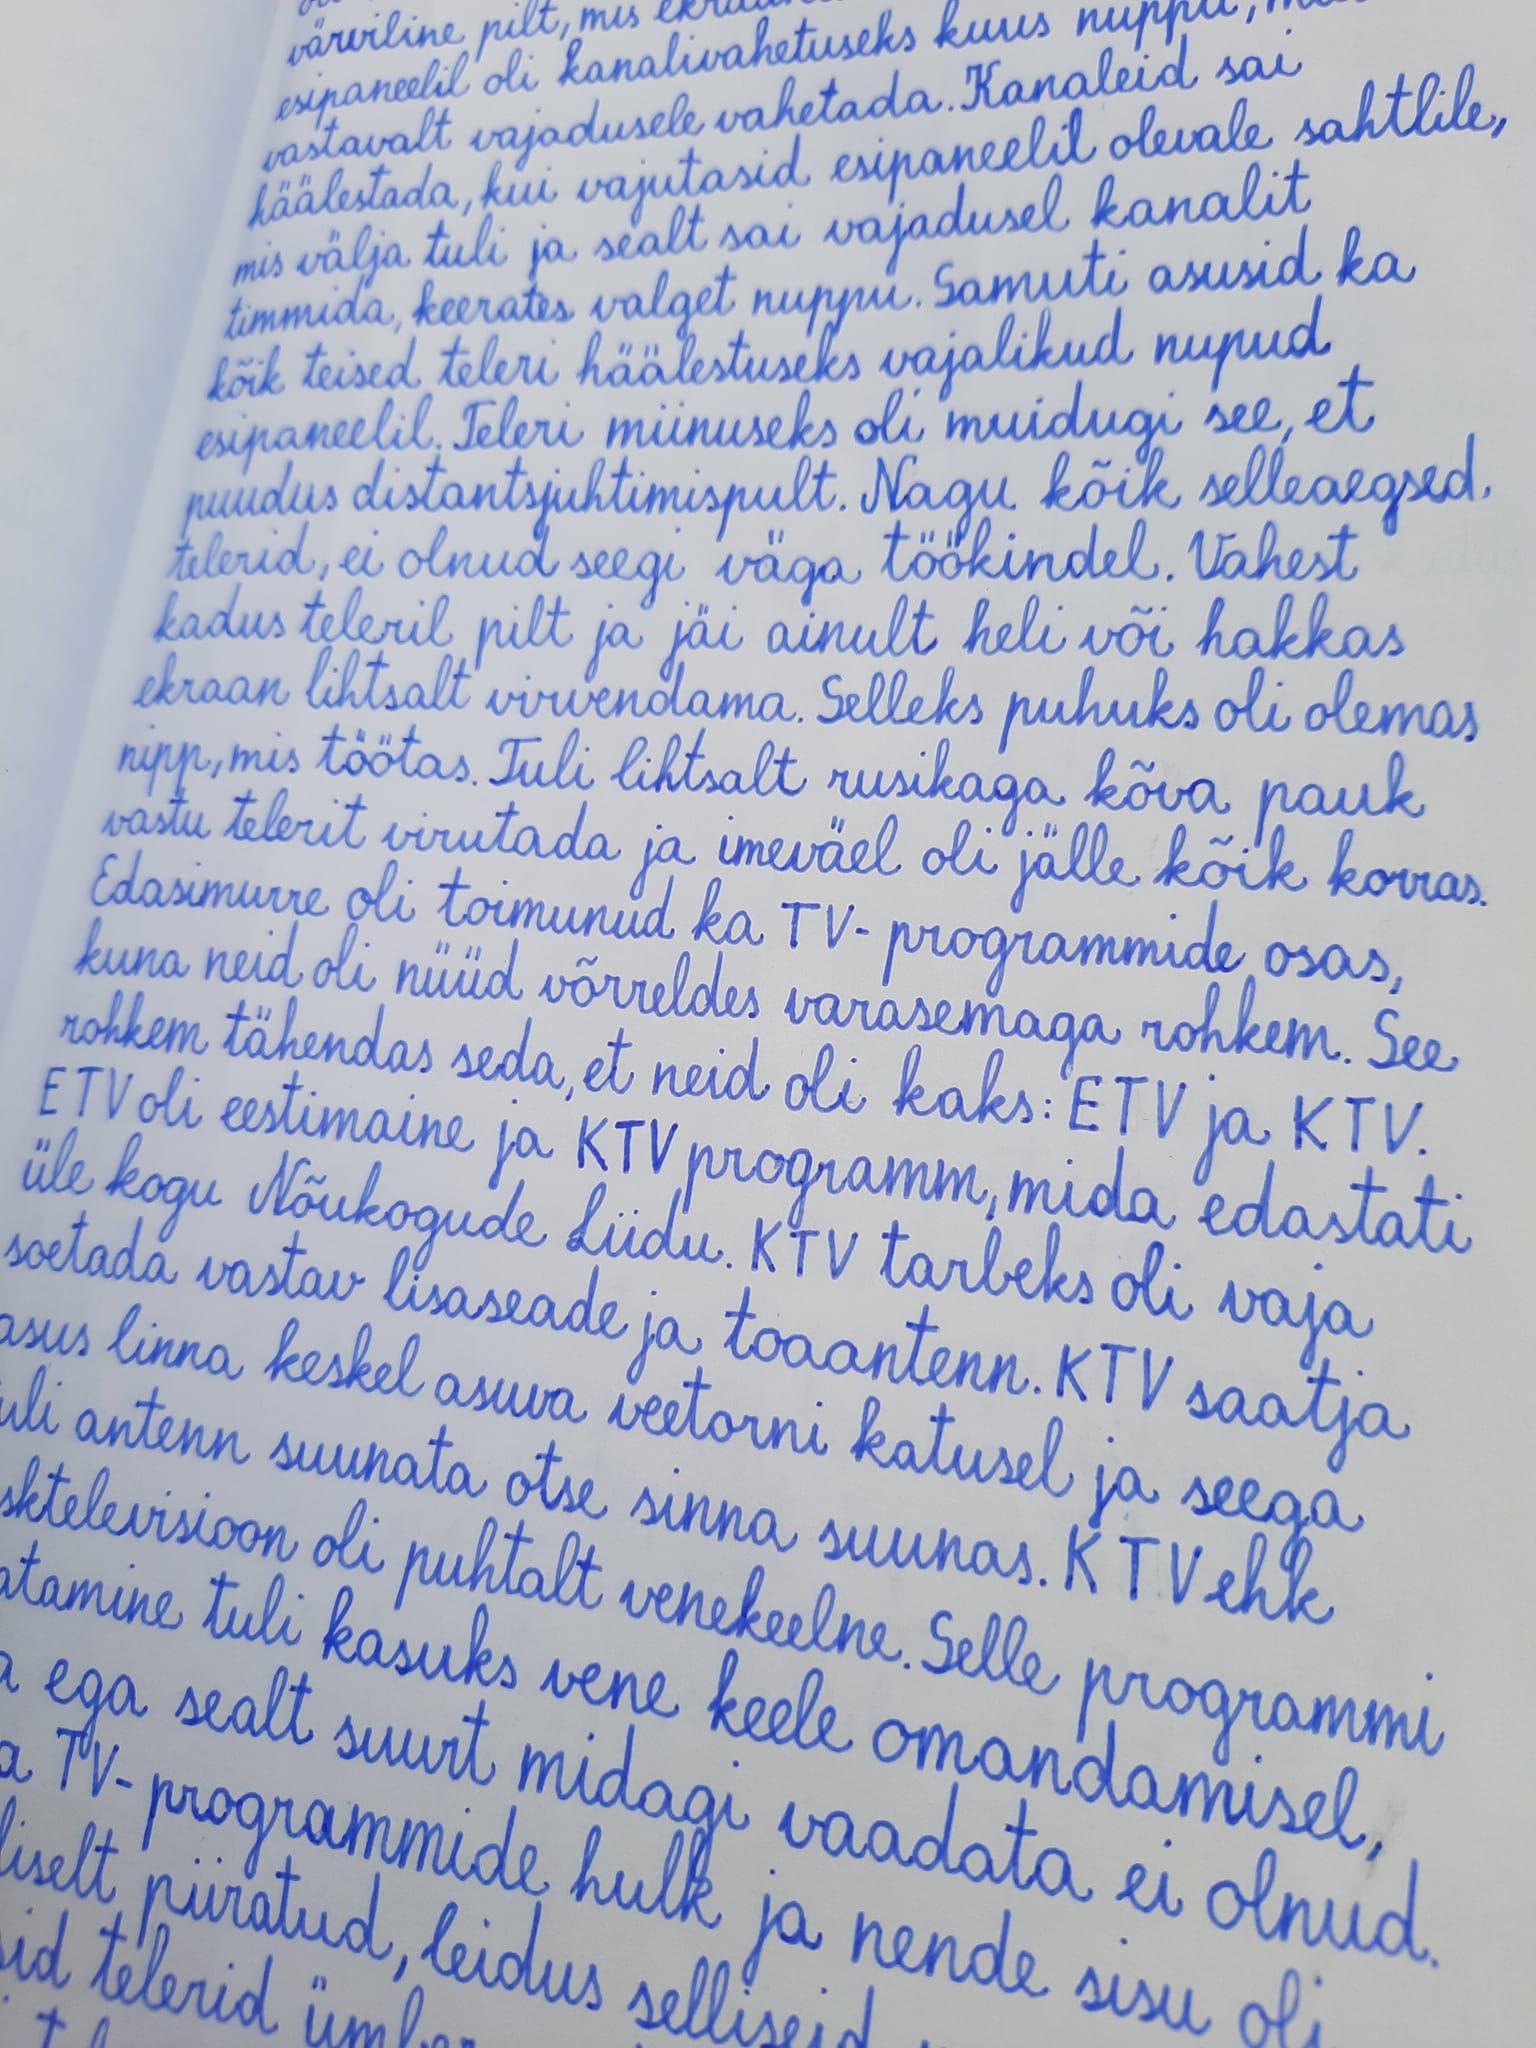 värviline pilt, mis
esipaneelil oli kanalivahetuseks kuus nuppu,
vastavalt vajadusele vahetada. Kanaleid sai
häälestada, kui vajutasid esipaneelil olevale sahtlile,
mis välja tuli ja sealt sai vajadusel kanalit
timmida, keerates valget nuppu. Samuti asusid ka
kõik teised teleri häälestuseks vajalikud nupud
esipaneelil. Teleri miinuseks oli muidugi see, et
puudus distantsjuhtimispult. Nagu kõik selleaegsed
telerid, ei olnud seegi väga töökindel. Vahest
kadus teleril pilt ja jäi ainult heli või hakkas
ekraan lihtsalt virvendama. Selleks puhuks oli olemas
nipp, mis töötas. Tuli lihtsalt rusikaga kõva pauk
vastu telerit virutada ja imeväel oli jälle kõik korras.
Edasimurre oli toimunud ka TV-programmide osas,
kuna neid oli nüüd võrreldes varasemaga rohkem. See
rohkem tähendas seda, et neid oli kaks: ETV ja KTV.
ETV oli eestimaine ja KTV programm, mida edastati
üle kogu Nõukogude Liidu. KTV tarbeks oli vaja
soetada vastav lisaseade ja toaantenn. KTV saatja
asus linna keskel asuva veetorni katusel ja seega
uli antenn suunata otse sinna suunas. KTV ehk
sktelevisioon oli puhtalt venekeelne. Selle programmi
atamine tuli kasuks vene keele omandamisel,
a ega sealt suurt midagi vaadata ei olnud.
a TV-programmide hulk ja nende sisu oli
liselt piiratud, leidus selliseid
sid telerid ümber